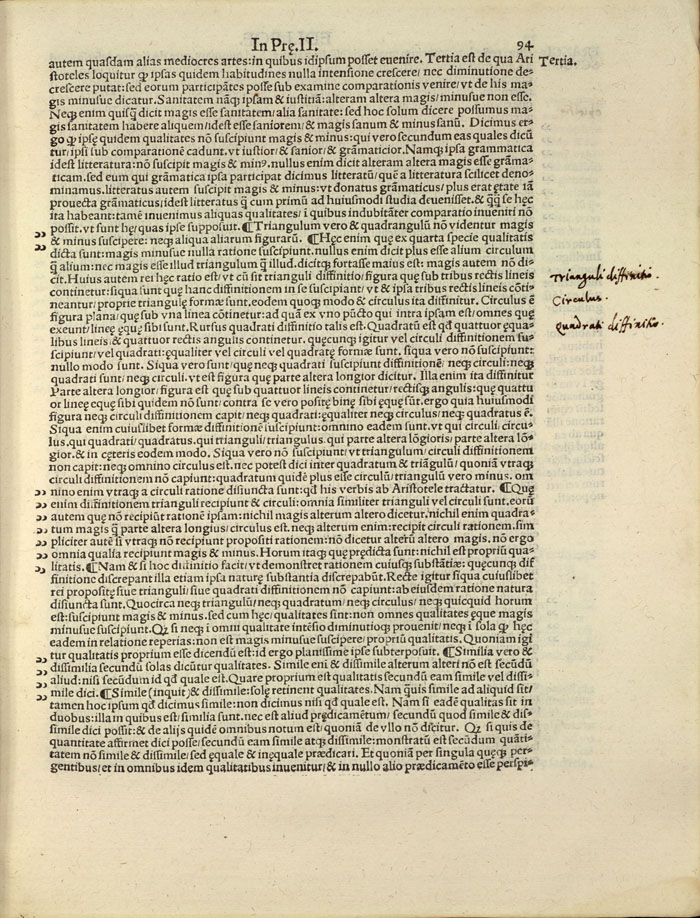 In Prę.II. 94
autem quasdam alias mediocres artes: in quibus idipsum posset euenire. Tertia est de qua Ari Tertia.
stoteles loquitur ꝙ ipsas quidem habitudines nulla intensione crescere/ nec diminutione de⸗
crescere putat: sed eorum participātes posse sub examine comparationis venire/ vt de his ma⸗
gis minusue dicatur. Sanitatem nāq; ipsam & iustitiā: alteram altera magis/ minusue non esse.
Neq; enim quisq̄ dicit magis esse sanitatem/ alia sanitate: sed hoc solum dicere possumus ma⸗
gis sanitatem habere aliquem/ idest esse saniorem/ & magis sanum & minus sanū. Dicimus er⸗
go ꝙ ipsę quidem qualitates nō suscipiunt magis & minus: qui vero secundum eas quales dicū
tur/ ipsi sub comparationē cadunt. vt iustior/ & sanior/ & grāmaticior. Namq; ipsa grammatica
idest litteratura: nō suscipit magis & minꝰ. nullus enim dicit alteram altera magis esse grāma⸗
ticam. sed eum qui grāmatica ipsa participat dicimus litteratū/ quē a litteratura scilicet deno⸗
minamus. litteratus autem suscipit magis & minus: vt donatus grāmaticus/ plus erat ętate iā
prouecta grāmaticus/ idest litteratus q̄ cum primū ad huiusmodi studia deuenisset. & q̄q̄ se hęc
ita habeant: tamē inuenimus aliquas qualitates/ i quibus indubitāter comparatio inueniri nō
possit. vt sunt hę/ quas ipse supposuit. ¶ Triangulum vero & quadrangulū nō videntur magis
& minus suscipere: neq; aliqua aliarum figurarū. ¶ Hęc enim quę ex quarta specie qualitatis
dicta sunt: magis minusue nulla ratione suscipiunt. nullus enim dicit plus esse alium circulum
q̄ alium: nec magis esse illud triangulum q̄ illud. dicitq; fortasse maius est: magis autem nō di⸗
cit. Huius autem rei hęc ratio est/ vt cū sit trianguli diffinitio/ figura quę sub tribus rectis lineis
continetur: siqua sunt quę hanc diffinitionem in se suscipiant/ vt & ipsa tribus rectis lineis cōti⸗
neantur/ proprie triangulę formæ sunt. eodem quoq; modo & circulus ita diffinitur. Circulus ē
figura plana/ quę sub vna linea cōtinetur: ad quā ex vno pūcto qui intra ipsam est/ omnes quę
exeunt/ lineę ęquę sibi sunt. Rursus quadrati diffinitio talis est. Quadratū est qđ quattuor ęqua⸗
libus lineis/ & quattuor rectis angulis continetur. quęcunq; igitur vel circuli diffinitionem su⸗
scipiunt/ vel quadrati: ęqualiter vel circuli vel quadratę formæ sunt. siqua vero nō suscipiunt:
nullo modo sunt. Siqua vero sunt/ quę neq; quadrati suscipiunt diffinitionē/ neq; circuli: neq;
quadrati sunt/ neq; circuli. vt est figura quę parte altera longior dicitur. Illa enim ita diffinitur
Parte altera longior/ figura est quę sub quattuor lineis continetur/ rectisq; angulis: quę quattu
or lineę equę sibi quidem nō sunt/ contra se vero positę binę sibi ęquę sūt. ergo quia huiusmodi
figura neq; circuli diffinitionem capit/ neq; quadrati: ęqualiter neq; circulus/ neq; quadratus ē.
Siqua enim cuiuslibet formæ diffinitionē suscipiunt: omnino eadem sunt. vt qui circuli/ circu⸗
lus. qui quadrati/ quadratus. qui trianguli/ triangulus. qui parte altera lōgioris/ parte altera lō⸗
gior. & in cęteris eodem modo. Siqua vero nō suscipiunt/ vt triangulum/ circuli diffinitionem
non capit: neq; omnino circulus est. nec potest dici inter quadratum & triāgulū/ quoniā vtraq;
circuli diffinitionem nō capiunt: quadratum quidē plus esse circulū/ triangulū vero minus. om
nino enim vtraq; a circuli ratione disiuncta sunt: qđ his verbis ab Aristotele tractatur. ¶ Quę
enim diffinitionem trianguli recipiunt & circuli: omnia similiter trianguli vel circuli sunt. eorū
autem quę nō recipiūt rationē ipsam: nichil magis alterum altero dicetur. nichil enim quadra⸗
tum magis q̄ parte altera longius/ circulus est. neq; alterum enim: recipit circuli rationem. sim
pliciter autē si vtraq; nō recipiunt propositi rationem: nō dicetur alterū altero magis. nō ergo
omnia qualia recipiunt magis & minus. Horum itaq; quę prędicta sunt: nichil est propriū qua⸗
litatis. ¶ Nam & si hoc diffinitio facit/ vt demonstret rationem cuiusq; substātiæ: quęcunq; dif
finitione discrepant illa etiam ipsa naturę substantia discrepabūt. Recte igitur siqua cuiuslibet
rei propositę siue trianguli/ siue quadrati diffinitionem nō capiunt: ab eiusdem ratione natura
disiuncta sunt. Quocirca neq; triangulū/ neq; quadratum/ neq; circulus/ neq; quicquid horum
est: suscipiunt magis & minus. sed cum hęc/ qualitates sint: non omnes qualitates ęque magis
minusue suscipiunt. Qꝫ si neq; i omni qualitate intēsio diminutioq; prouenit/ neq; i sola ꝙ hęc
eadem in relatione reperias: non est magis minusue suscipere/ propriū qualitatis. Quoniam igi
tur qualitatis proprium esse dicendū est: id ergo planissime ipse subterposuit. ¶ Similia vero &
dissimilia secundū solas dicūtur qualitates. Simile eni & dissimile alterum alteri nō est secūdū
aliud: nisi secūdum id qđ quale est. Quare proprium est qualitatis secundū eam simile vel dissi⸗
mile dici. ¶ Simile (inquit) & dissimile: solę retinent qualitates. Nam q̄uis simile ad aliquid sit/
tamen hoc ipsum qđ dicimus simile: non dicimus nisi qđ quale est. Nam si eadē qualitas sit in
duobus: illa in quibus est/ similia sunt. nec est aliud prędicamētum/ secundū quod simile & dis⸗
simile dici possit: & de alijs quidē omnibus notum est/ quoniā de vllo nō dicitur. Qꝫ si quis de
quantitate affirmet dici posse/ secundū eam simile atq; dissimile: monstratū est secūdum quāti⸗
tatem nō simile & dissimile/ sed ęquale & inęquale prædicari. Et quoniā per singula quęq; per⸗
gentibus/ et in omnibus idem qualitatibus inuenitur/ & in nullo alio prædicamēto esse perspi⸗
Trianguli diffinitio.
Circulus.
Quadrati diffinitio.